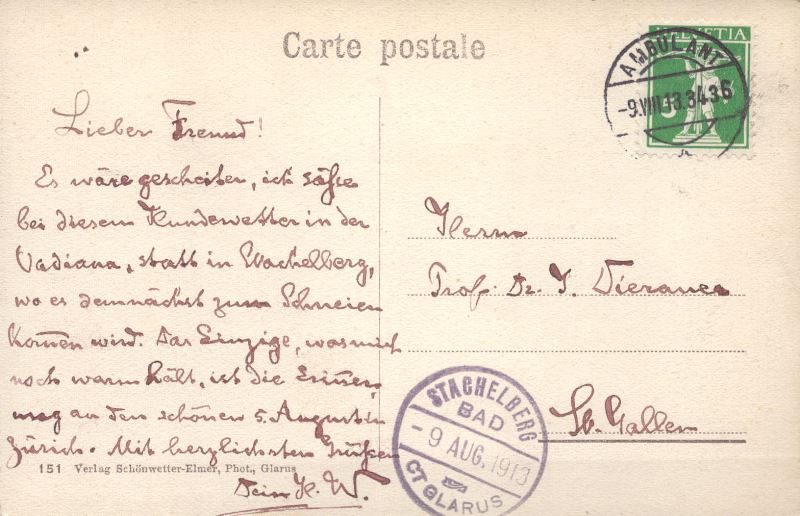 Carte postale
HELVETIA
AMBULANT
-9.VIII.13.3436
Lieber Freund!
Es wäre gescheiter, ich sässe
bei diesem Hundewetter in der
Vadiana, statt in Stachelberg,
wo es demnächst zum Schneien
kom̅en wird. Das Einzige, was mich
noch warm hält, ist die Erinne-
rung an den schönen 5. August in
Zürich. Mit herzlichsten Grüßen
Dein H. W.
Herrn
Prof. Dr. J. Dierauer
St. Gallen
STACHELBERG
BAD
- 9 AUG. 1913
CT GLARUS
151 Verlag Schönwetter-Elmer, Phot., Glarus